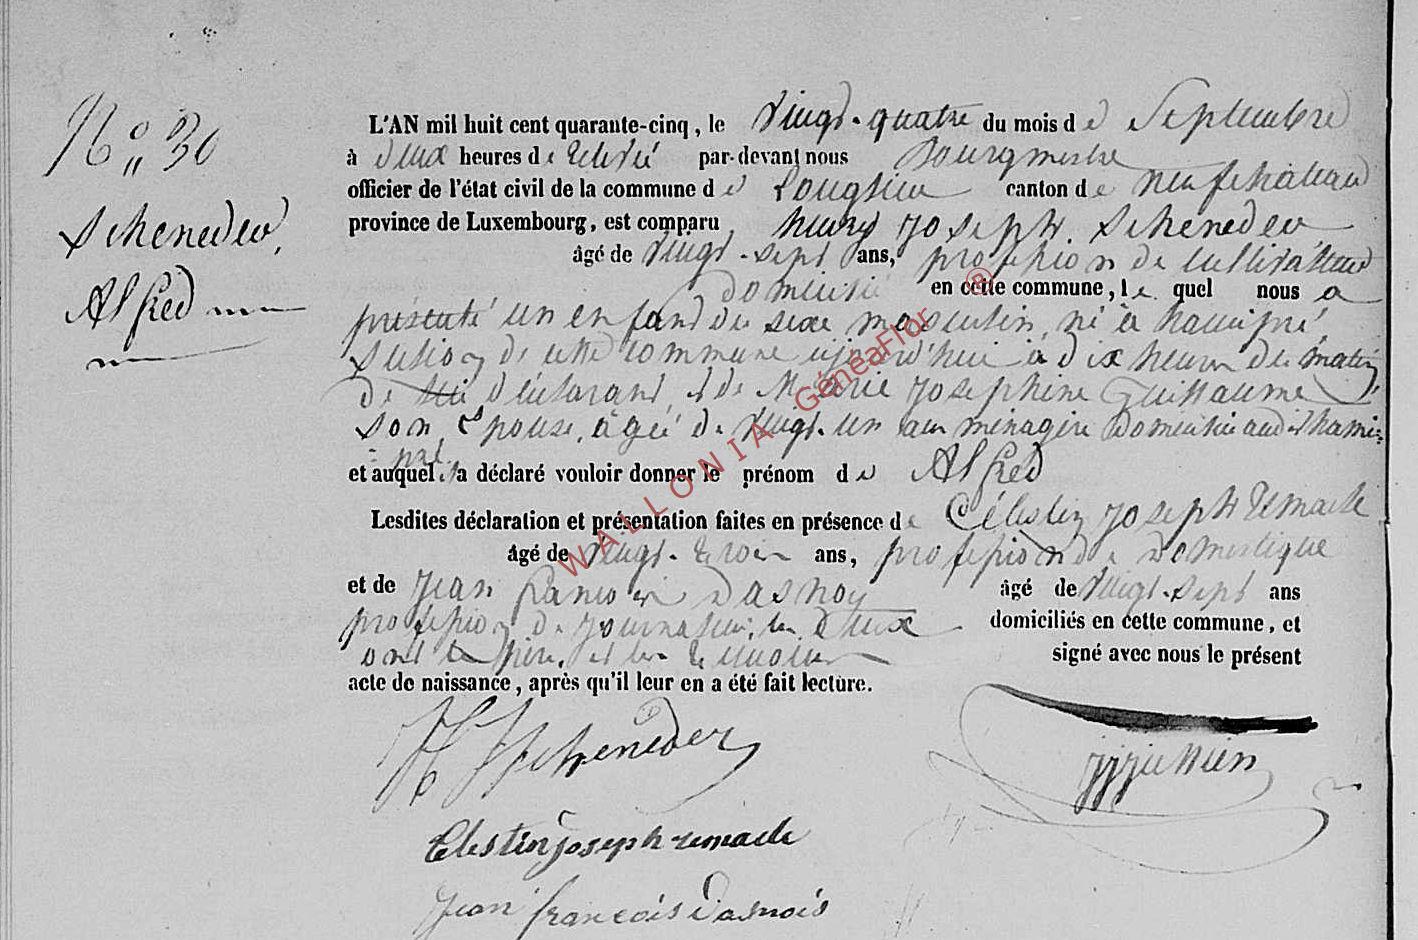 N° 30
Scheneder,
Alfred
L'AN mil huit cent quarante-cinq, le vingt-quatre du mois de Septembre
à deux heures de relevé par-devant nous Bourgmestre
officier de l'état civil de la commune de Longlier canton de neufchateau
province de Luxembourg, est comparu henry joseph Scheneder
âgé de vingt-sept ans, profession de cultivateur
domicilié en cette commune, lequel nous a
présenté un enfant du sexe masculin, né à hamipré
section de cette commune aujourd'hui à dix heures du matin,
de lui déclarant, et de Marie josephine Guillaume
son Epouse, agée de vingt-un ans ménagère domiciliée audit hami=
=pré
et auquel il a déclaré vouloir donner le prénom de Alfred
Lesdites déclaration et présentation faites en présence de Célestin joseph Remacle
âgé de vingt-trois ans, profession de domestique
et de jean francois dasnoy âgé de vingt-sept ans
profession de journalier, les deux domiciliés en cette commune, et
ont le père, et les témoins signé avec nous le présent
acte de naissance, après qu'il leur en a été fait lecture.
H J Scheneder
Celestin joseph remacle
jean françois dasnois
WALLONIA GénéaFlor ®